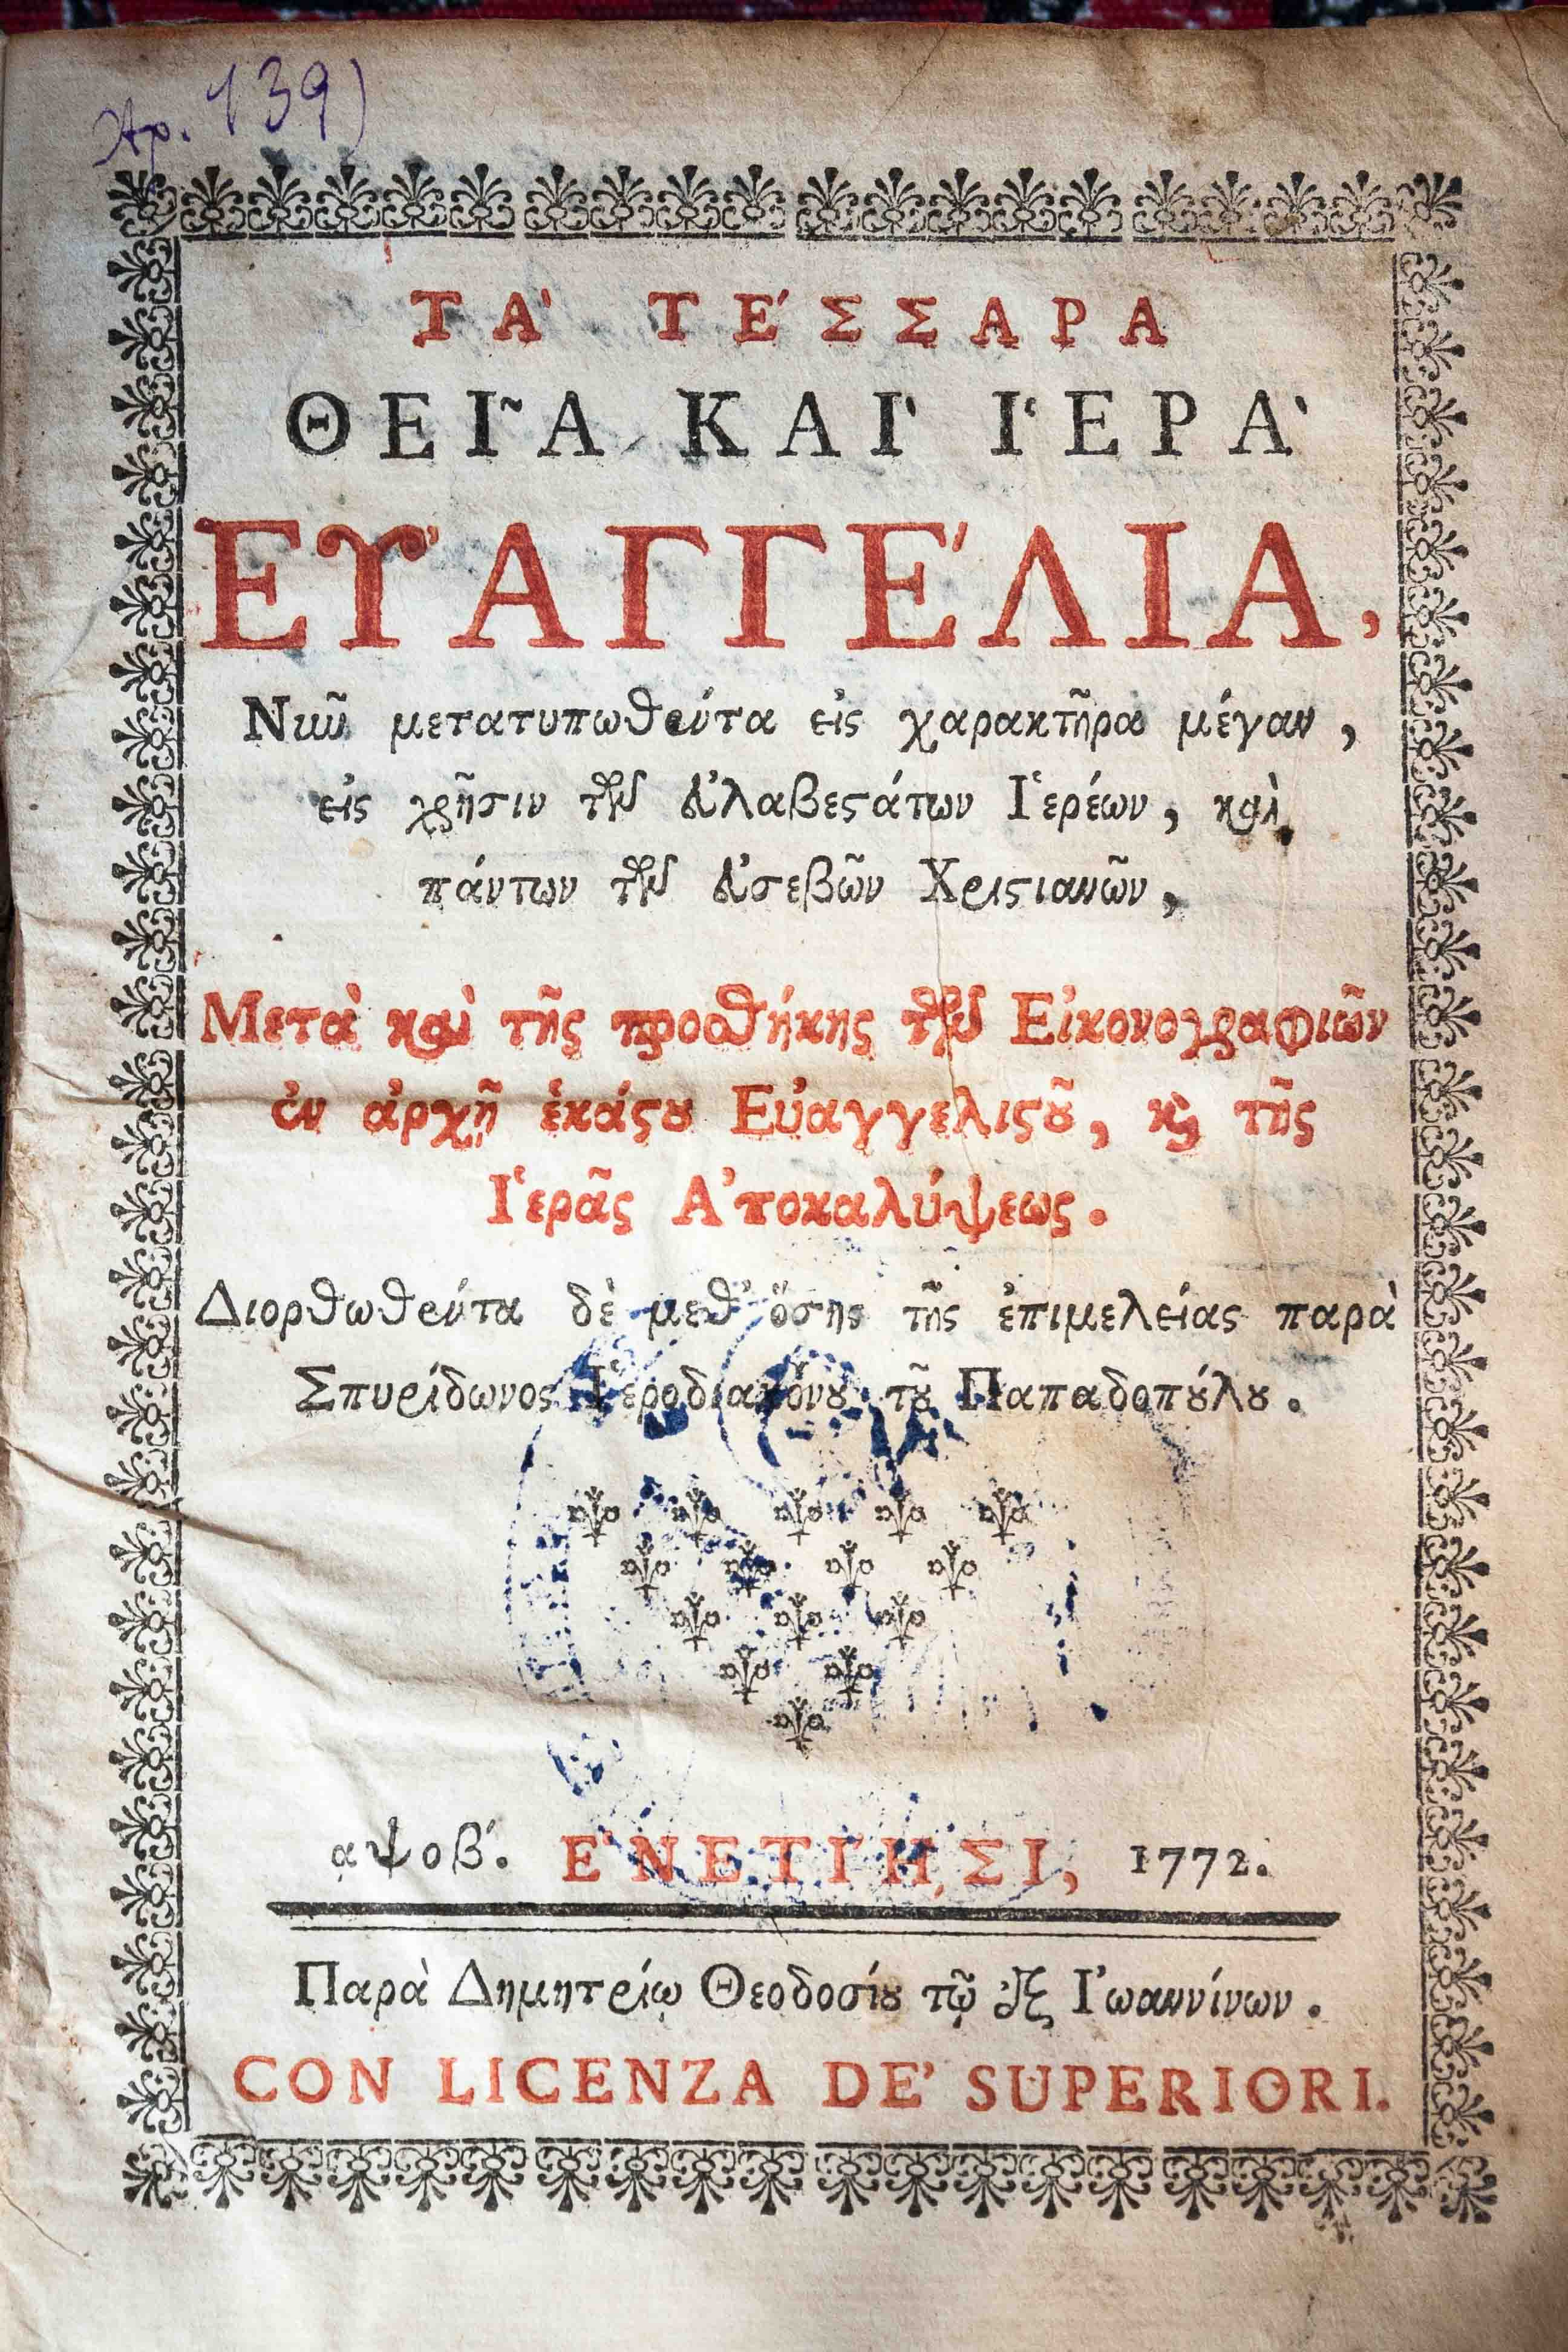 Ἀρ. 139)
ΤᾺ ΤΈΣΣΑΡΑ
ΘΕΙ͂Α ΚΑῚ ἹΕΡᾺ
ΕΥ̓ΑΓΓΈΛΙΑ,
Νιωῦ μετατυπωθέντα εἰς χαρακτῆρα μέγαν,
εἰς χρῆσιν τῶν εὐλαβεϛάτων Ἱερέων, καὶ
πάντων τῶν εὐσεβῶν Χριϛιανῶν,
Μετὰ καὶ τῆς προσθήκης τῶν Εἰκονογραφιῶν
ἐν ἀρχῇ ἑκάϛȣ Εὐαγγελιϛȣ͂, ϗ̀ τῆς
Ἱερᾶς Ἀποκαλύψεως.
Διορθωθέντα δὲ μεθ' ὅσης τῆς ἐπιμελείας παρὰ
Σπυρίδωνος Ἱεροδιακόνȣ τȣ͂ Παπαδοπȣ́λȣ.
͵αψοβʹ. ἘΝΕΤΊῌΣΙ, 1772.
Παρὰ Δημητρίῳ Θεοδοσίȣ τῷ ἐξ Ἰωαννίνων.
CON LICENZA DE' SUPERIORI.